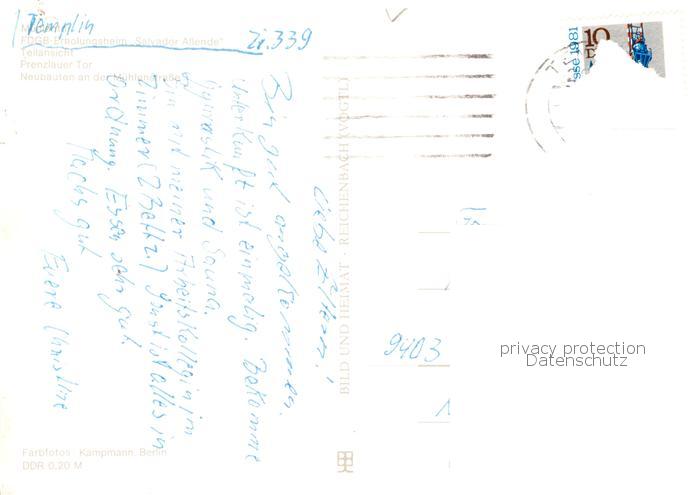 Templin
Zi. 339
FDGB-Erholungsheim „Salvador Allende"
Teilansicht
Prenzlauer Tor
Neubauten an der Mühlenstraße
Liebe Eltern!
Bin gut angekommen.
Unterkunft ist einmalig. Bekomme
Gymnastik und Sauna.
Bin mit meiner Arbeitskollegin im
Zimmer (2 Bettz.) sonst ist alles in
Ordnung. Essen sehr gut.
Machs gut
Eure Christine
BILD UND HEIMAT · REICHENBACH (VOGTL)
Farbfotos: Kampmann, Berlin
DDR 0,20 M
sse 1981
10
9403
privacy protection
Datenschutz